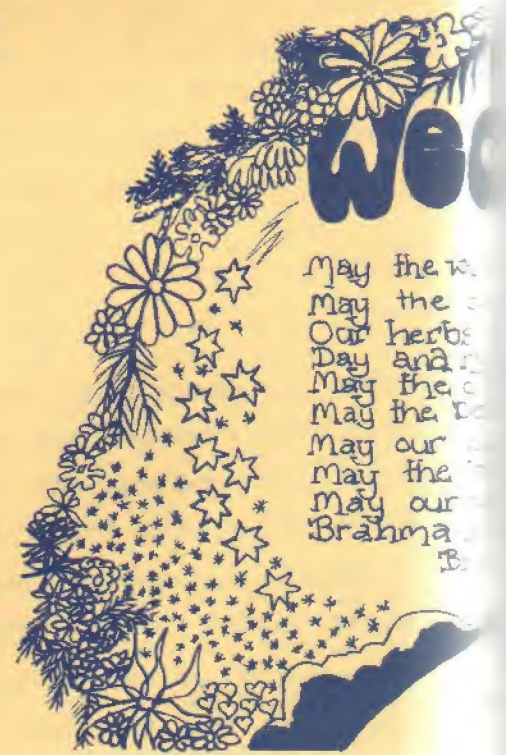 We
May the
May the
Our herbs
Day and
May the
May the
May our
May the
May our
Brahma